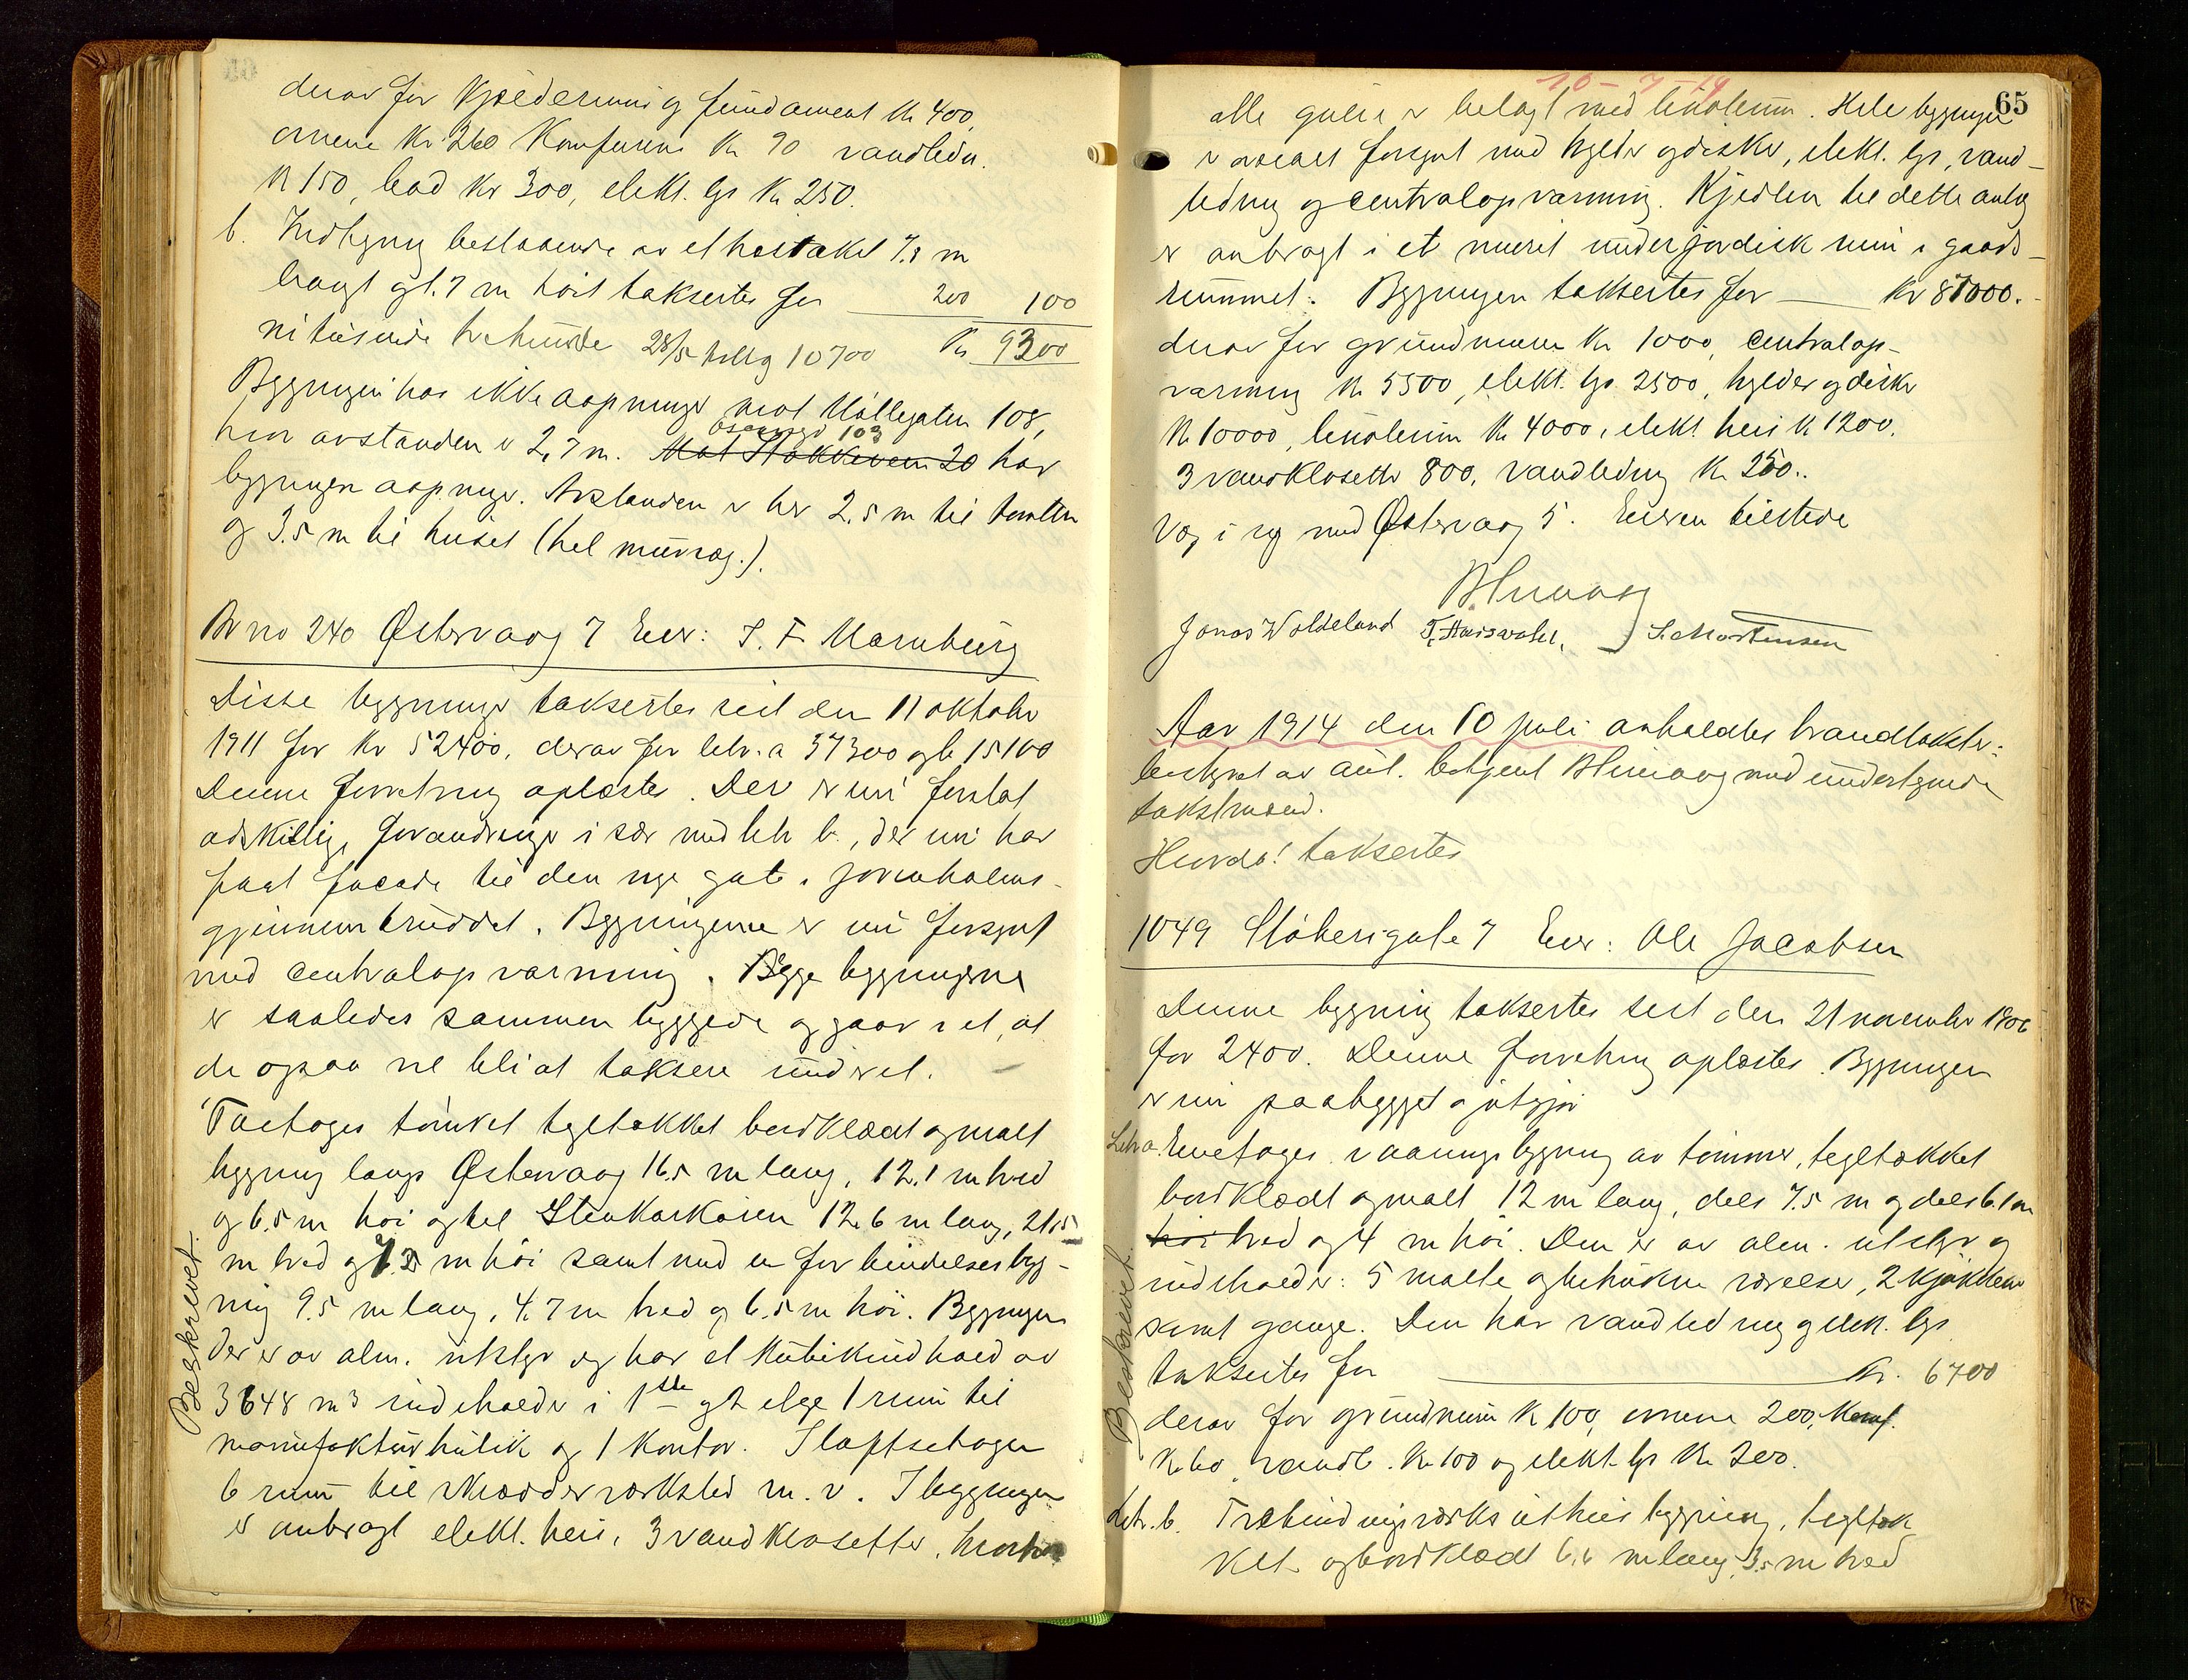 derav for Kjælderrum og fundament Kr 400,
ovnene Kr 260 Komfurene Kr 90 vandledn.
Kr 150, bad Kr 300, elekt. lys Kr 250.
b. Indhegning bestaaende av et 7.8 m
langt og 1.7 m høit taksertes for 200 100
ni tusinde tre hundre 28/5 10700 Kr 9300
Bygningen har ikke aapninger mot Møllegaten 108,
hvor avstanden er 2,7 m. Mot Stokkeveien 20 har
103
bygningen aapninger. Avstanden er her 2.5 m til tomten
og 3.5 m til huset (hel murvæg.).
Br no 240 Østervaag 7 Eier: J. F. Marnburg
Disse bygninger taksertes sist den 11 oktober
1911 for Kr 52400, derav for litr. a 37300 og b 15100
Denne forretning oplæstes. Der er nu foretat
adskillige forandringer især med litr b., der nu har
faat facade til den nye gate i Jorenholms-
gjennembruddet. Bygningerne er nu forsynt
med centralopvarmning. Begge bygningerne
er saaledes sammen byggede og gaar i et, at
de ogsaa vil bli at taksere under et.
Toetages tømret tegltækket bordklædt og malt
bygning langs Østervaag 16.5 m lang, 12.1 m bred
og 6.5 m høi og til Stenkarkaien 12.6 m lang, 21.5
m bred og 7.3 m høi samt med en forbindelsesbyg-
ning 9.5 m lang, 4.7 m bred og 6.5 m høi. Bygningen
der er av alm. utstyr og har et kubikindhold av
3648 m3 indeholder i 1ste og 2 etage 1 rum til
manufakturbutik og 1 kontor. I loftsetagen
6 rum til skrædderverksted m. v. I bygningen
er anbragt elekt. heis, 3 vandklosetter,
Beskrevet.
10-7-14
65
alle gulve er belagt med linoleum. Hele bygningen
er forsynt med hylder og diske, elekt. lys, vand-
ledning og centralopvarmning. Kjedlen til dette anlæg
er anbragt i et muret underjordisk rum i gaards-
rummet. Bygningen taksertes for Kr 87000.
derav for grundmuren Kr 1000, centralop-
varming Kr 5500, elekt. lys 2500, hylder og diske
Kr 10000, linoleum Kr 4000, elekt heis Kr 1200.
3 vandklosetter 800, vandledning Kr 250.
Væg i væg med Østervaag 5. Eieren tilstede
Jonas Woldeland S. Mortensen
Aar 1914 den 10 juli avholdtes brandtakst
bestyret av aut. betjent med undertegnede
takstmænd.
Hvorda! taksertes
1049 Støberigate 7 Eier: Ole Jacobsen
Denne bygning taksertes sist den 21 november 1906
for 2400. Denne forretning oplæstes. Bygningen
er nu paabygget og utgjør
Litr a. Enetages vaaningsbygning av tømmer, tegltækket
bordklædt og malt 12 m lang, dels 7.5 m og dels 6.1 m
høi bred og 4 m høi. Den er av alm. utstyr og
indeholder: 5 malte og betrukne værelser, 2 kjøkkener
samt gange. Den har vandledning og elek. lys
taksertes for Kr. 6700
derav for grundmur Kr 100, ovnene 200, Komf.
Kr 60, vandl. Kr 100 og elekt lys Kr 200.
Litr. b. Træbindingsverks uthusbygning, tegltæk
ket og bordklædt 6.6 m lang, 3.5 m bred
Beskrevet.